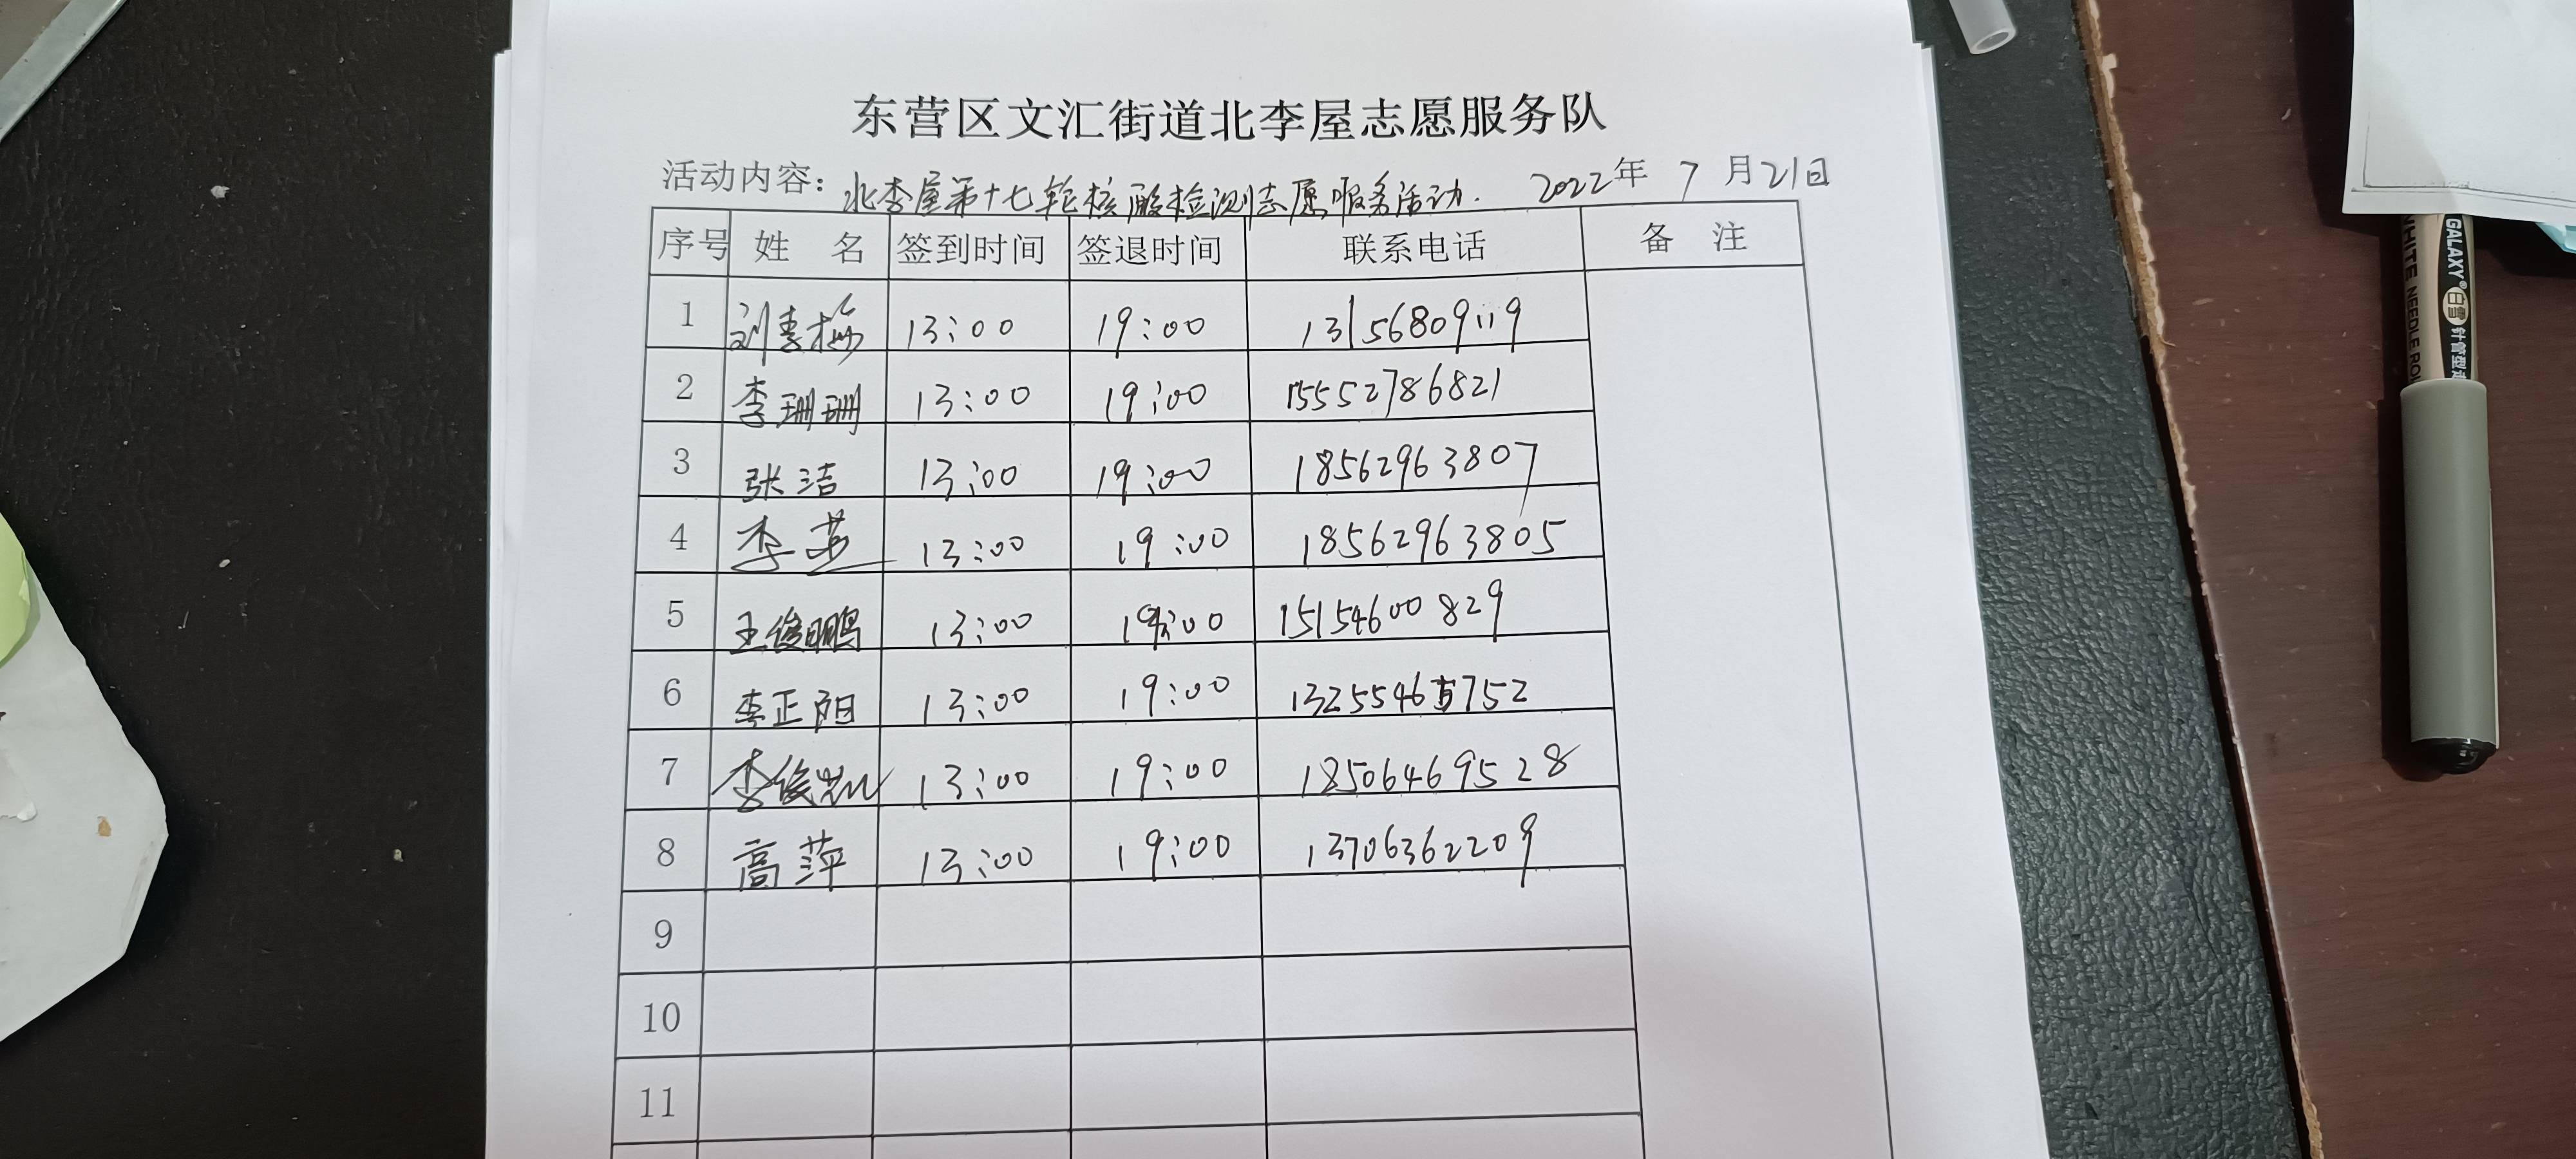 东营区文汇街道北李屋志愿服务队
活动内容：北李屋第十七轮核酸检测志愿服务活动. 2022年 7 月21日
序号 姓 名 签到时间 签退时间 联系电话 备 注
1 刘春梅 13:00 19:00 13156809119
2 李珊珊 13:00 19:00 15552786821
3 张洁 13:00 19:00 18562963807
4 李燕 13:00 19:00 18562963805
5 王俊鹏 13:00 19:00 15154600829
6 李正阳 13:00 19:00 13255465752
7 李俊凯 13:00 19:00 18506469528
8 高萍 13:00 19:00 13706362209
9
10
11
GALAXY® 白雪 针管型
WHITE NEEDLE